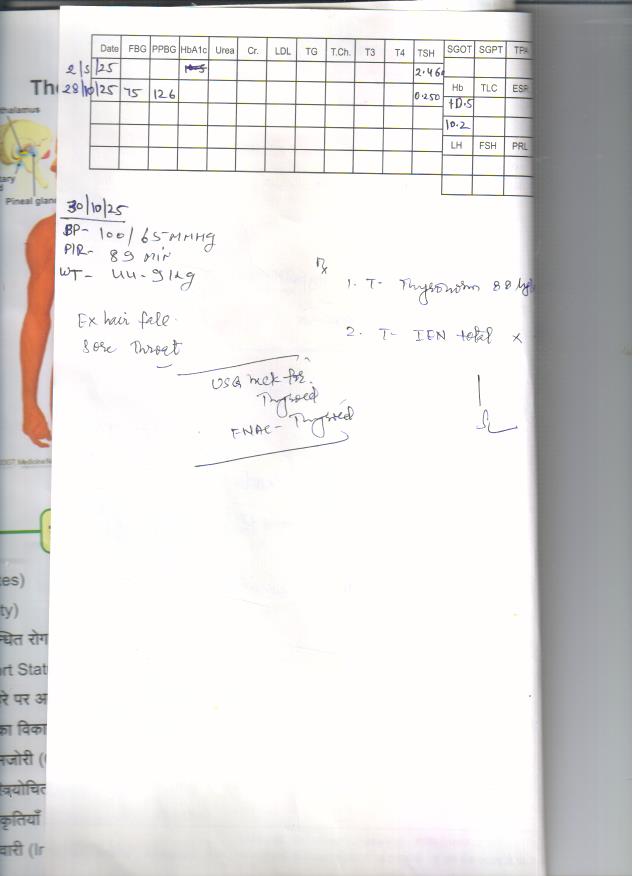 Date FBG PPBG HbA1c Urea Cr. LDL TG T.Ch. T3 T4 TSH SGOT SGPT TPA
2/5/25 2.46
28/10/25 75 126 0.250
Hb TLC ESR
10.5
10.2
LH FSH PRL
Th
thalamus
tary
Pineal glan
30/10/25
BP- 100/65 mmHg
P/R- 89 min
WT- 44.9 kg
Rx
1. T- Thyronorm 88
2. T- total x
Ex hair fall.
Sore Throat
USG neck for.
Thyroid
FNAC- Thyroid
es)
ty)
धित रोग
rt Stat
रे पर अ
का विका
जोरी (
कृतियाँ
वारी (Ir